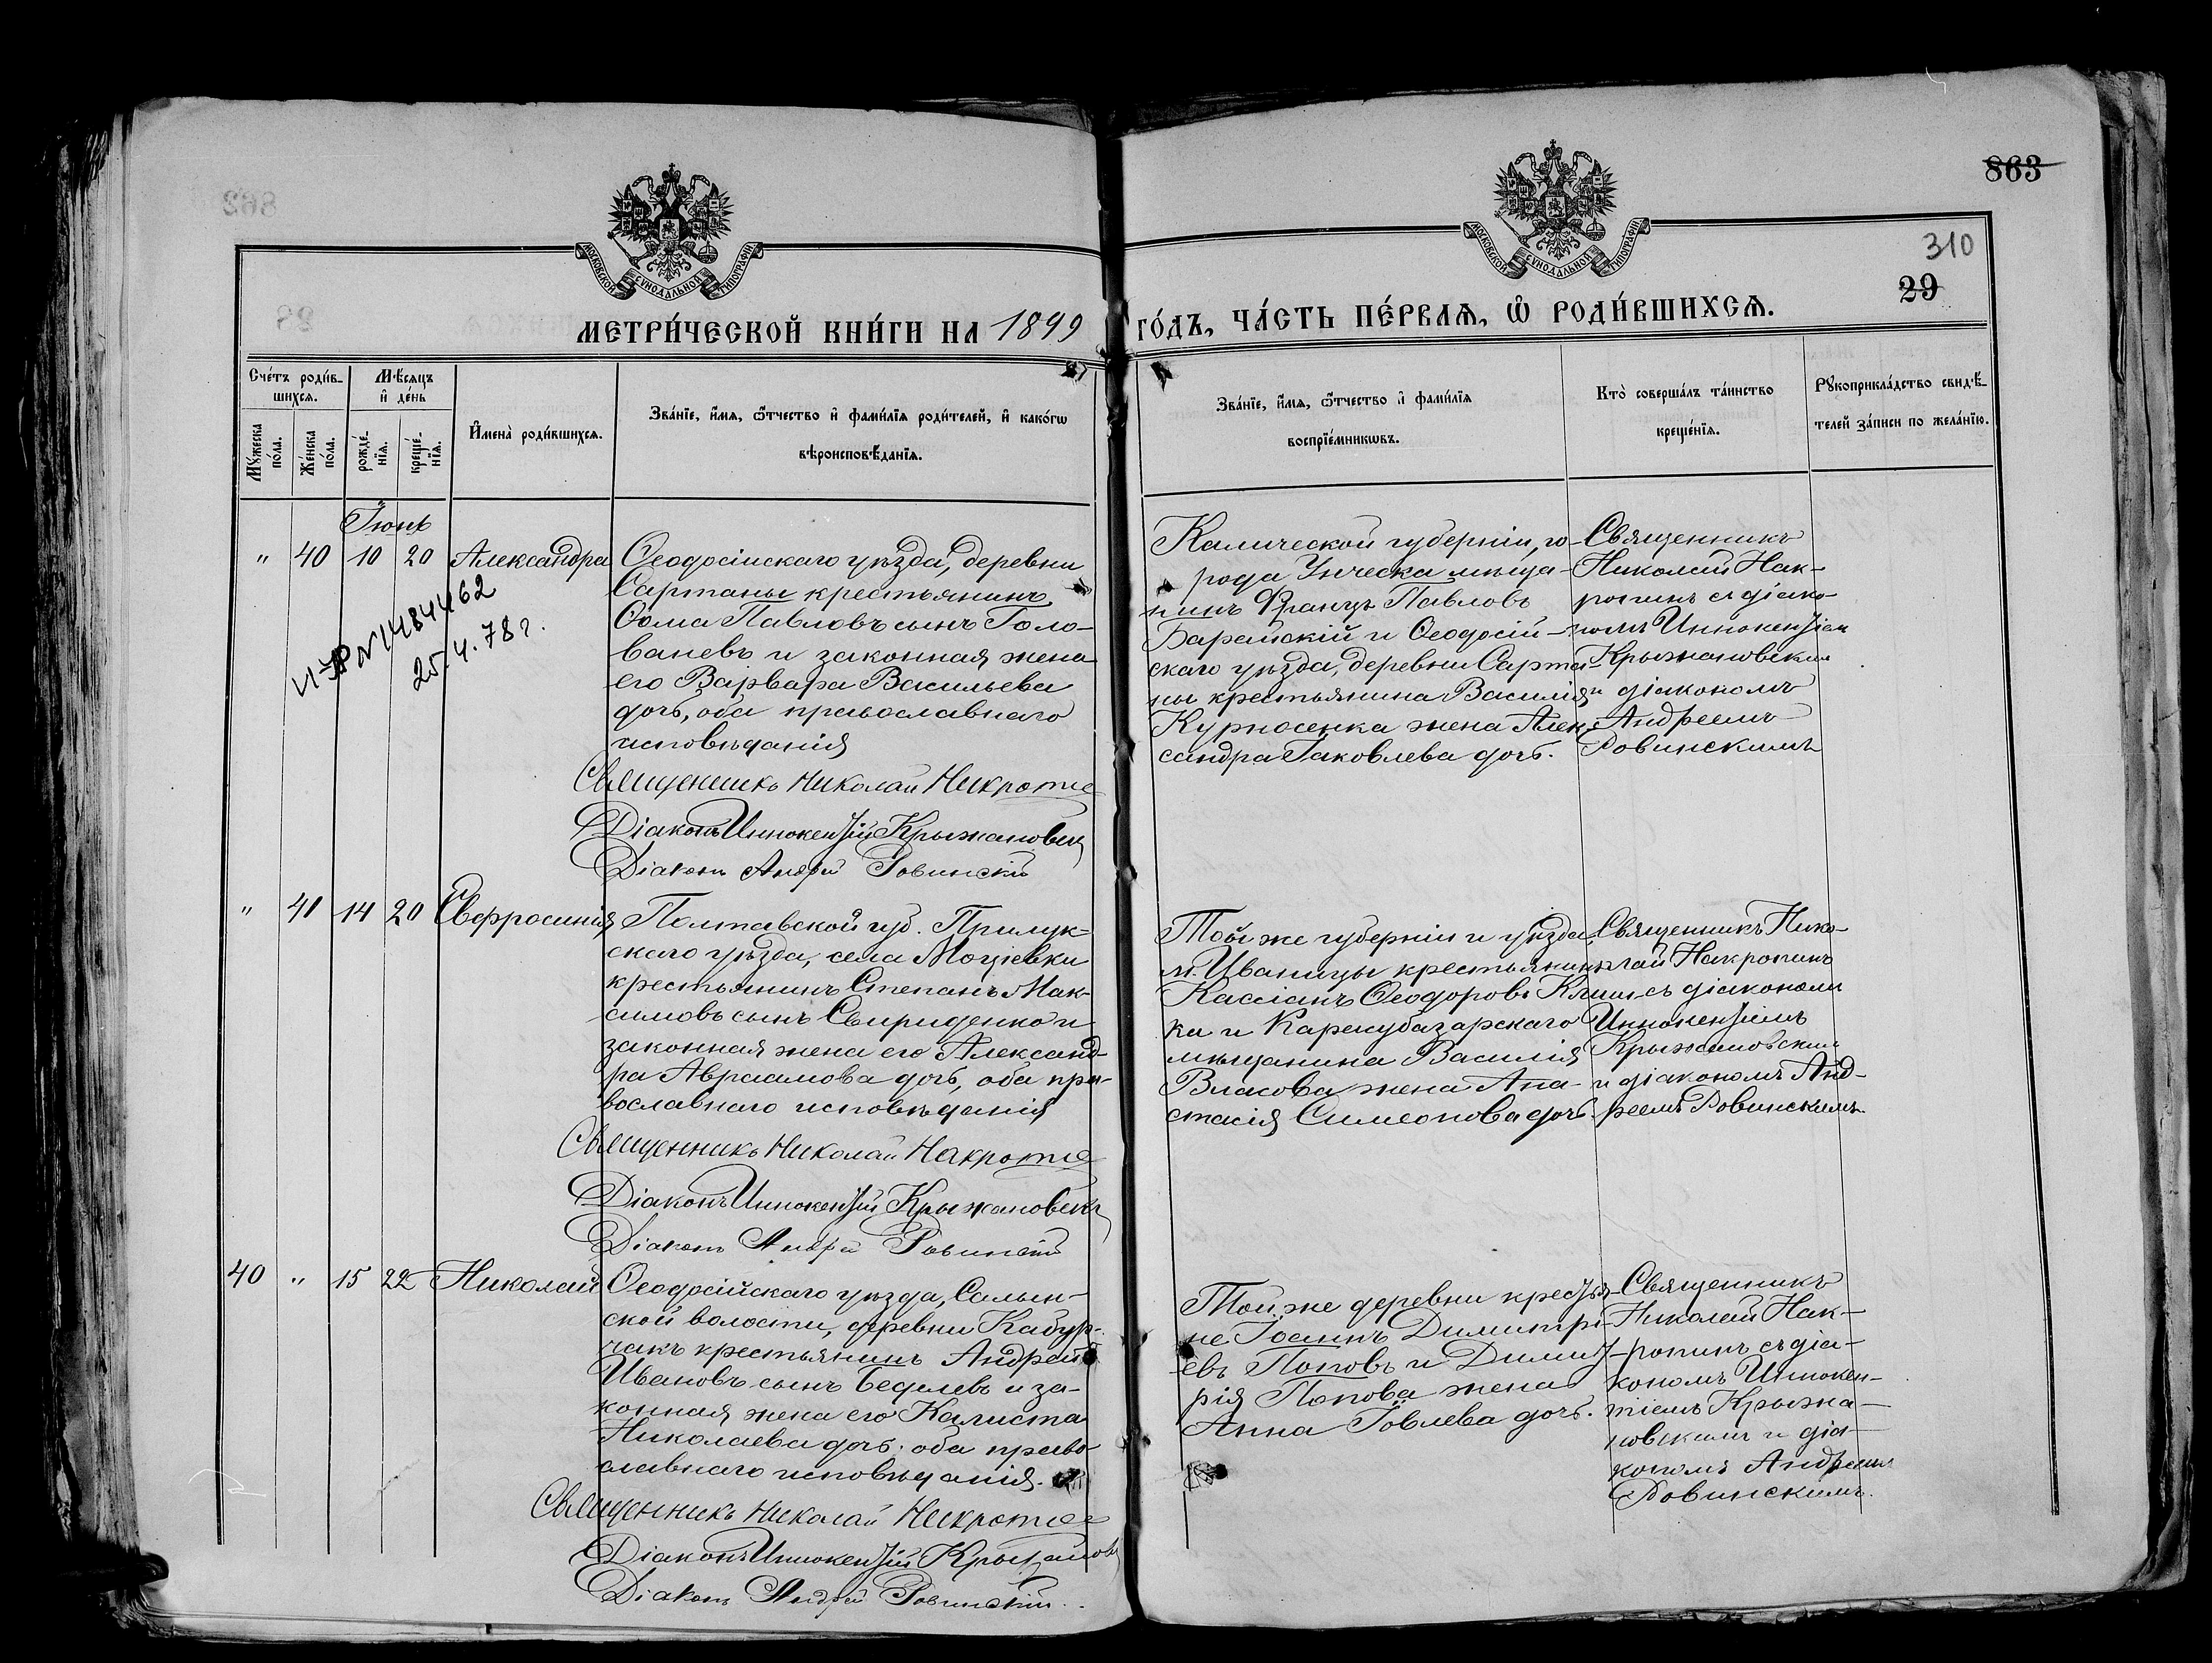 863
310
29
МОСКОВСКОЙ СѴНОДАЛЬНОЙ ТИПОГРАФІИ
МОСКОВСКОЙ СѴНОДАЛЬНОЙ ТИПОГРАФІИ
МЕТРИ́ЧЕСКОЙ КНИ́ГИ НА 1899 ГО́ДЪ, ЧА́СТЬ ПЕ́РВАѦ, Ѡ РОДИ́ВШИХСѦ.
Сче́тъ роди́в-
шихся.
Мѣ́сяцъ
и́ де́нь
Мꙋ́жеска по́ла.
Же́нска по́ла.
рожде́-
нїя.
креще́-
нїя.
И́мена̀ роди́вшихся.
Зва́нїе, и́мя, ѻ́тчество и́ фами́лїя роди́телей, и́ како́гѡ
вѣроисповѣ́данїя.
Зва́нїе, и́мя, ѻ́тчество и́ фами́лїя
воспрїе́мникѡвъ.
Кто̀ соверша́лъ та́инство
креще́нїя.
Рꙋкоприкла́дство свидѣ́-
телей за́писи по жела́нїю.
Іюнь
" 40 10 20 Александра
Ѳеодосійскаго уѣзда, деревни
Сартаны крестьянинъ
Ѳома Павловъ сынъ Голо-
ваневъ и законная жена
его Варвара Васильева
дочь, оба православнаго
исповѣданія
25.4.78г.
Священникъ Николай
Діаконъ Иннокентій Крыжановск
Діаконъ Андрей Ровинскій
губерніи, го-
рода мѣща-
нинъ Францъ Павловъ
и Ѳеодосій-
скаго уѣзда, деревни Сарта-
ны крестьянина Василія
Курносенка жена Алек-
сандра Іаковлева дочь.
Священникъ
Николай Нак-
ропинъ съ діако-
номъ Иннокентіем
Крыжановским
и діакономъ
Андреемъ
Ровинскимъ
" 41 14 20 Евфросинія
Полтавской губ. Прилук-
скаго уѣзда, села Мощевки
крестьянинъ Степанъ Мак-
симовъ сынъ Свириденко и
законная жена его Александ-
ра Авраамова дочь, оба пра-
вославнаго исповѣданія
Священникъ Николай
Діаконъ Иннокентій Крыжановск
Діаконъ Андрей Ровинскій
Той же губерніи и уѣзда,
м. Иваницы крестьянин
Кассіанъ Ѳеодоровъ
ка и Карасубазарскаго
мѣщанина Василія
Власова жена Ана-
стасія Симеонова дочь.
Священникъ Нико-
лай Накропинъ
съ діакономъ
Иннокентіемъ
Крыжановским
и діакономъ Анд-
реемъ Ровинскимъ
40 " 15 22 Николай
Ѳеодосійскаго уѣзда, Салын-
ской волости, деревни Кабур-
чакъ крестьянинъ Андрей
Ивановъ сынъ и за-
конная жена его Калиста
Николаева дочь. оба право-
славнаго исповѣданія.
Священникъ Николай
Діаконъ Иннокентій
Діаконъ Андрей Ровинскій
Той же деревни крестья-
не Іоаннъ Димитрі-
евъ Поповъ и Димит-
рія Попова жена
Анна Іовлева дочь.
Священникъ
Николай Нак-
ропинъ съ діа-
кономъ Иннокен-
тіемъ Крыжа-
новскимъ и діа-
кономъ Андреем
Ровинскимъ.